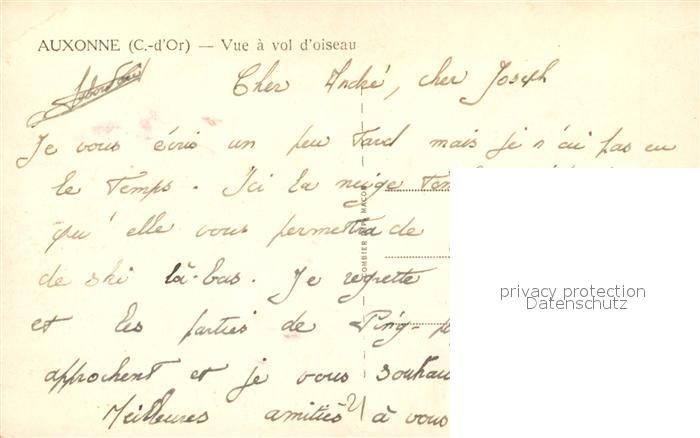 AUXONNE (C.-d'Or) — Vue à vol d'oiseau
Cher André, cher Joseph
Je vous écris un peu tard mais je n'ai pas eu
le temps. Ici la neige
qu'elle vous permettra de
de ski là-bas. Je regrette
et les parties de Ping-
approchent et je vous
Meilleures amitiés à vous
COMBIER MACON
privacy protection
Datenschutz